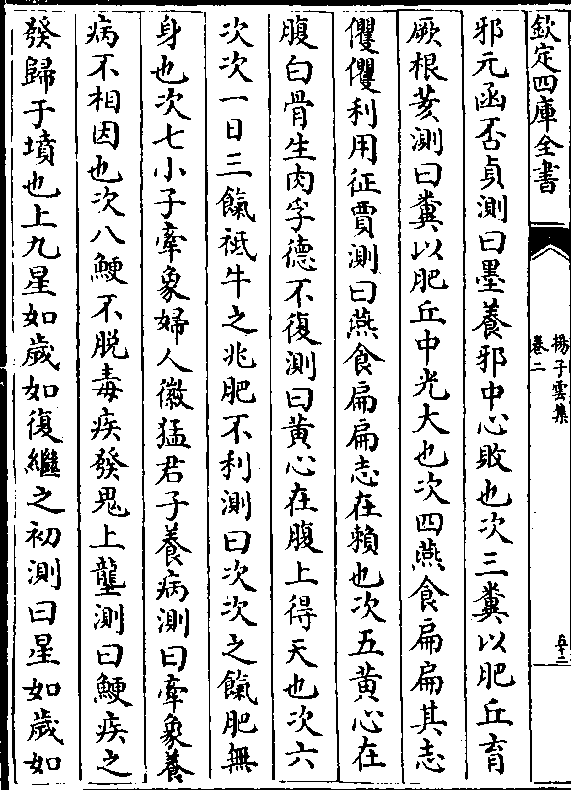 欽定四庫全書
揚子雲集
卷二
邪元函否貞測曰墨養邪中心敗也次三糞以肥丘育
厥根荄測曰糞以肥丘中光大也次四燕食扁扁其志
㒧㒧利用征賈測曰燕食扁扁志在賴也次五黄心在
腹白骨生肉孚德不復測曰黄心在腹上得天也次六
次次一日三餼祗牛之兆肥不利測曰次次之餼肥無
身也次七小子牽象婦人徽猛君子養病測曰牽象養
病不相因也次八鯁不脱毒疾發鬼上壟測曰鯁疾之
發歸于墳也上九星如歲如復繼之初測曰星如歲如